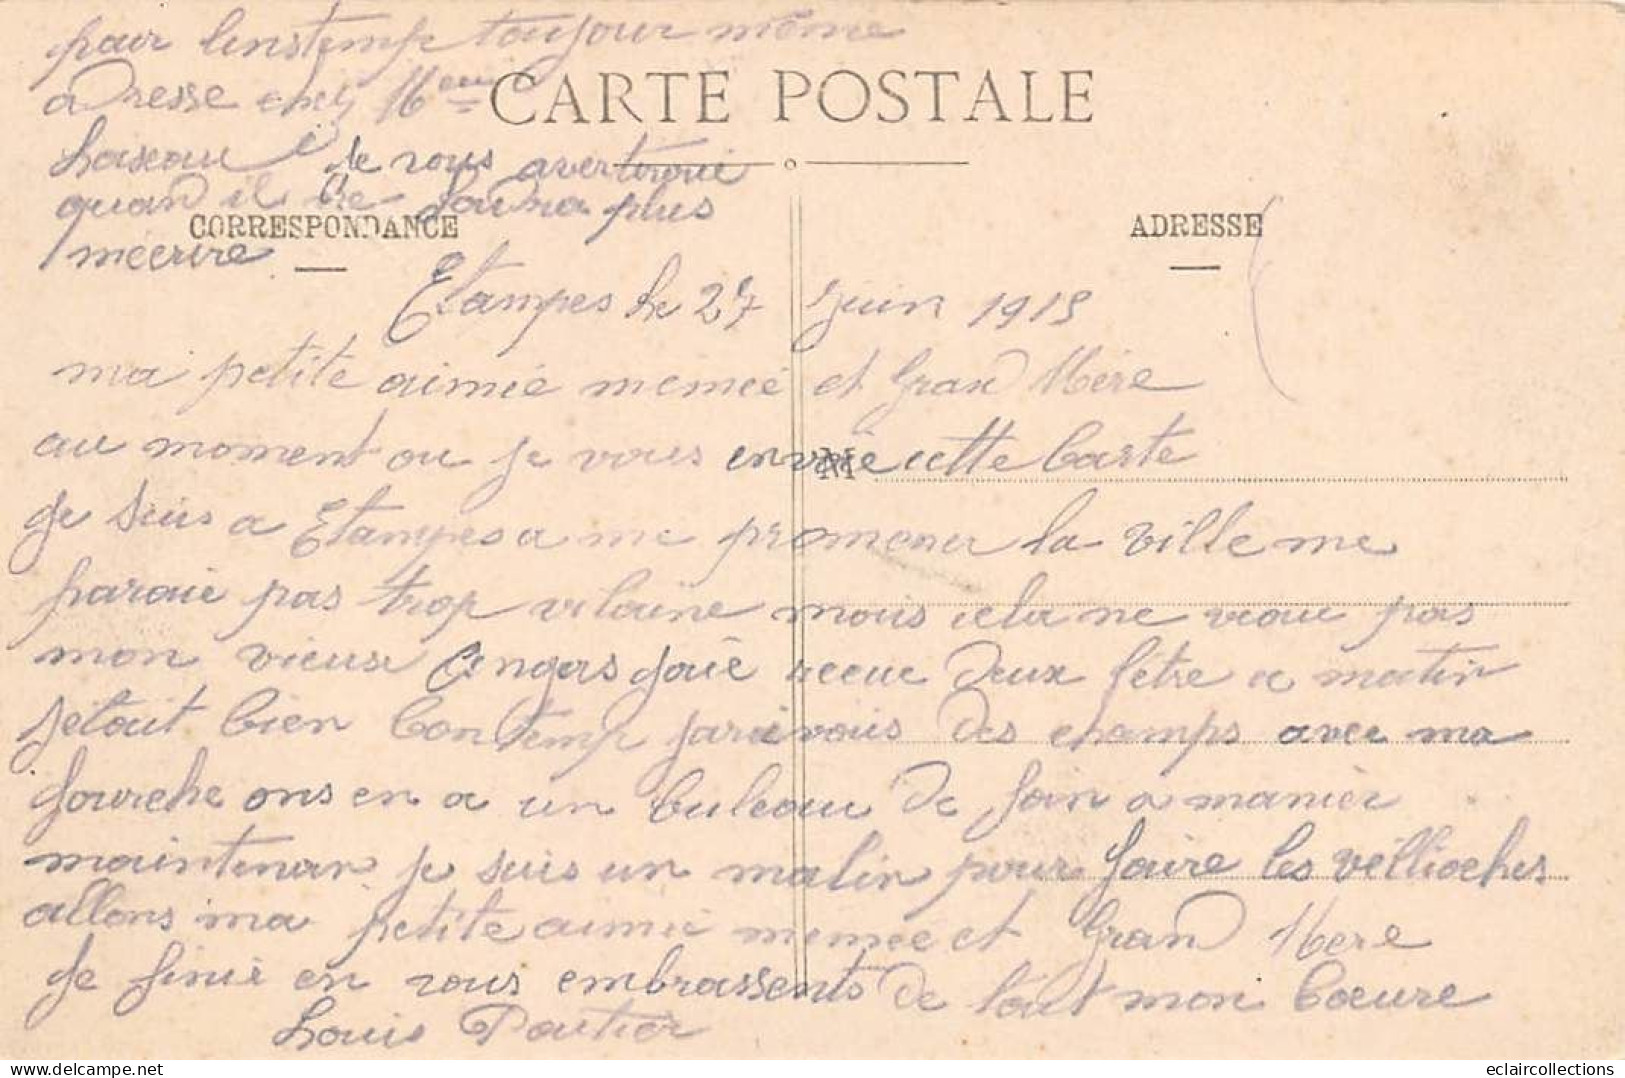 pour linstemp toujour même
CARTE POSTALE
adresse chez Meur
Loiseau je vous avertirerie
quand il ne foudra plus
CORRESPONDANCE
ADRESSE
mécrire
Etampes le 27 juin 1915
ma petite aimié memeé et Gran Mère
au moment ou je vous envoie cette Carte
M
je suis a Etampes a me promener la ville me
paraie pas trop vilaine mais cela ne veau pas
mon vieux Angers jaiè recue deux letre a matin
jétait bien Contemp jarivais des champs avec ma
fourche ons en a un buleau de foin a manier
maintenan je suis un malin pour faire les véllioches
allons ma petite aimié memée et Gran Mere
je finie en vous embrassents de tout mon Coeure
Louis Pautier
eclaircollections